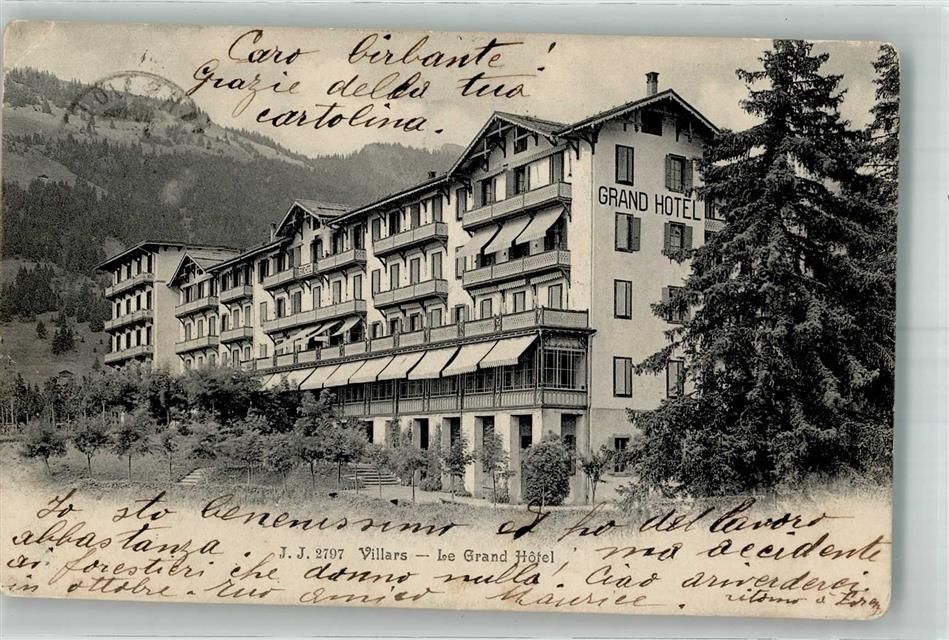 Caro birbante!
Grazie della tua
cartolina.
GRAND HOTEL
Io sto benenissimo ed ho del lavoro
abbastanza. ma accidente
J. J. 2797 Villars — Le Grand Hôtel
ai forestieri che donno nulla! Ciao ariverderci
in ottobre. tuo amico Maurice. ritorno a